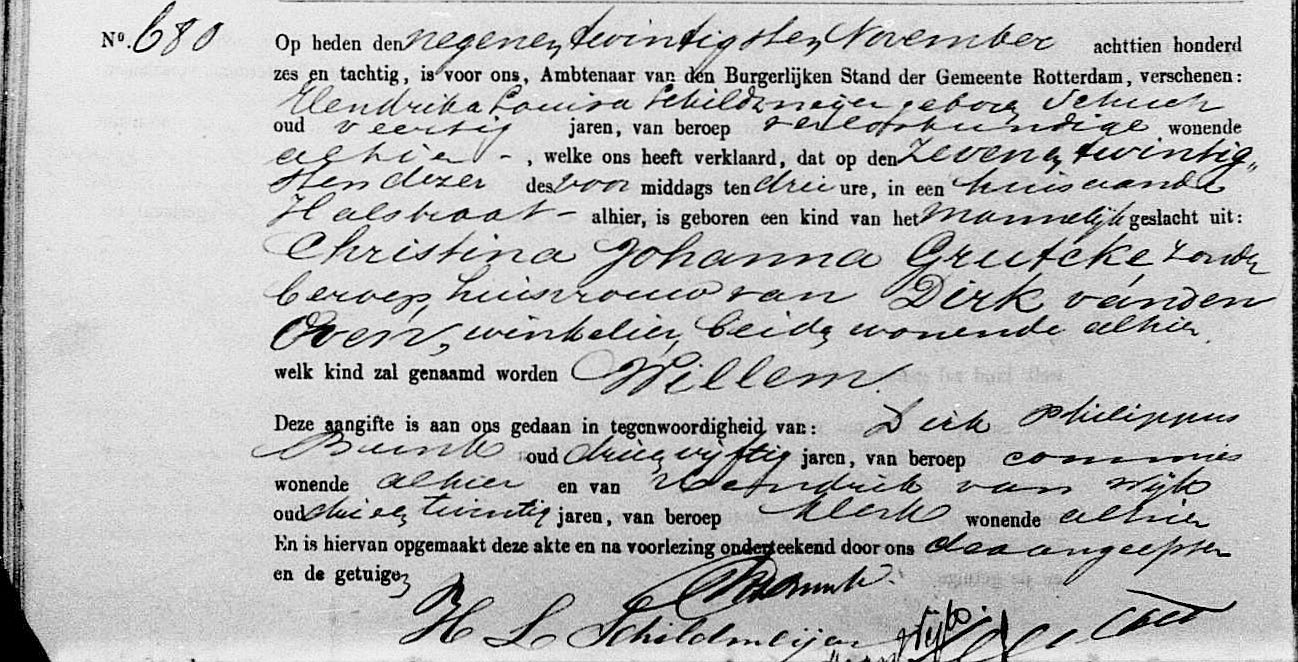 No. 680 Op heden den negen en twintigsten November achttien honderd
zes en tachtig, is voor ons, Ambtenaar van den Burgerlijken Stand der Gemeente Rotterdam, verschenen:
Hendrika Louisa Schildmeijer geboren Schuch
oud veertig jaren, van beroep verloskundige wonende
alhier - , welke ons heeft verklaard, dat op den zeven en twintig„
sten dezer des voor middags ten drie ure, in een huis aan de
Halstraat - alhier, is geboren een kind van het Mannelijk geslacht uit:
Christina Johanna Grutcke zonder
beroep, huisvrouw van Dirk van den
Oven, winkelier, beide wonende alhier
welk kind zal genaamd worden Willem
Deze aangifte is aan ons gedaan in tegenwoordigheid van: Dirk Philippus
Buink oud drie en vijftig jaren, van beroep commies
wonende alhier en van Hendrik van Wijk
oud drie en twintig jaren, van beroep klerk wonende alhier
En is hiervan opgemaakt deze akte en na voorlezing onderteekend door ons de aangeefster
en de getuigen
H L Schildmeijer